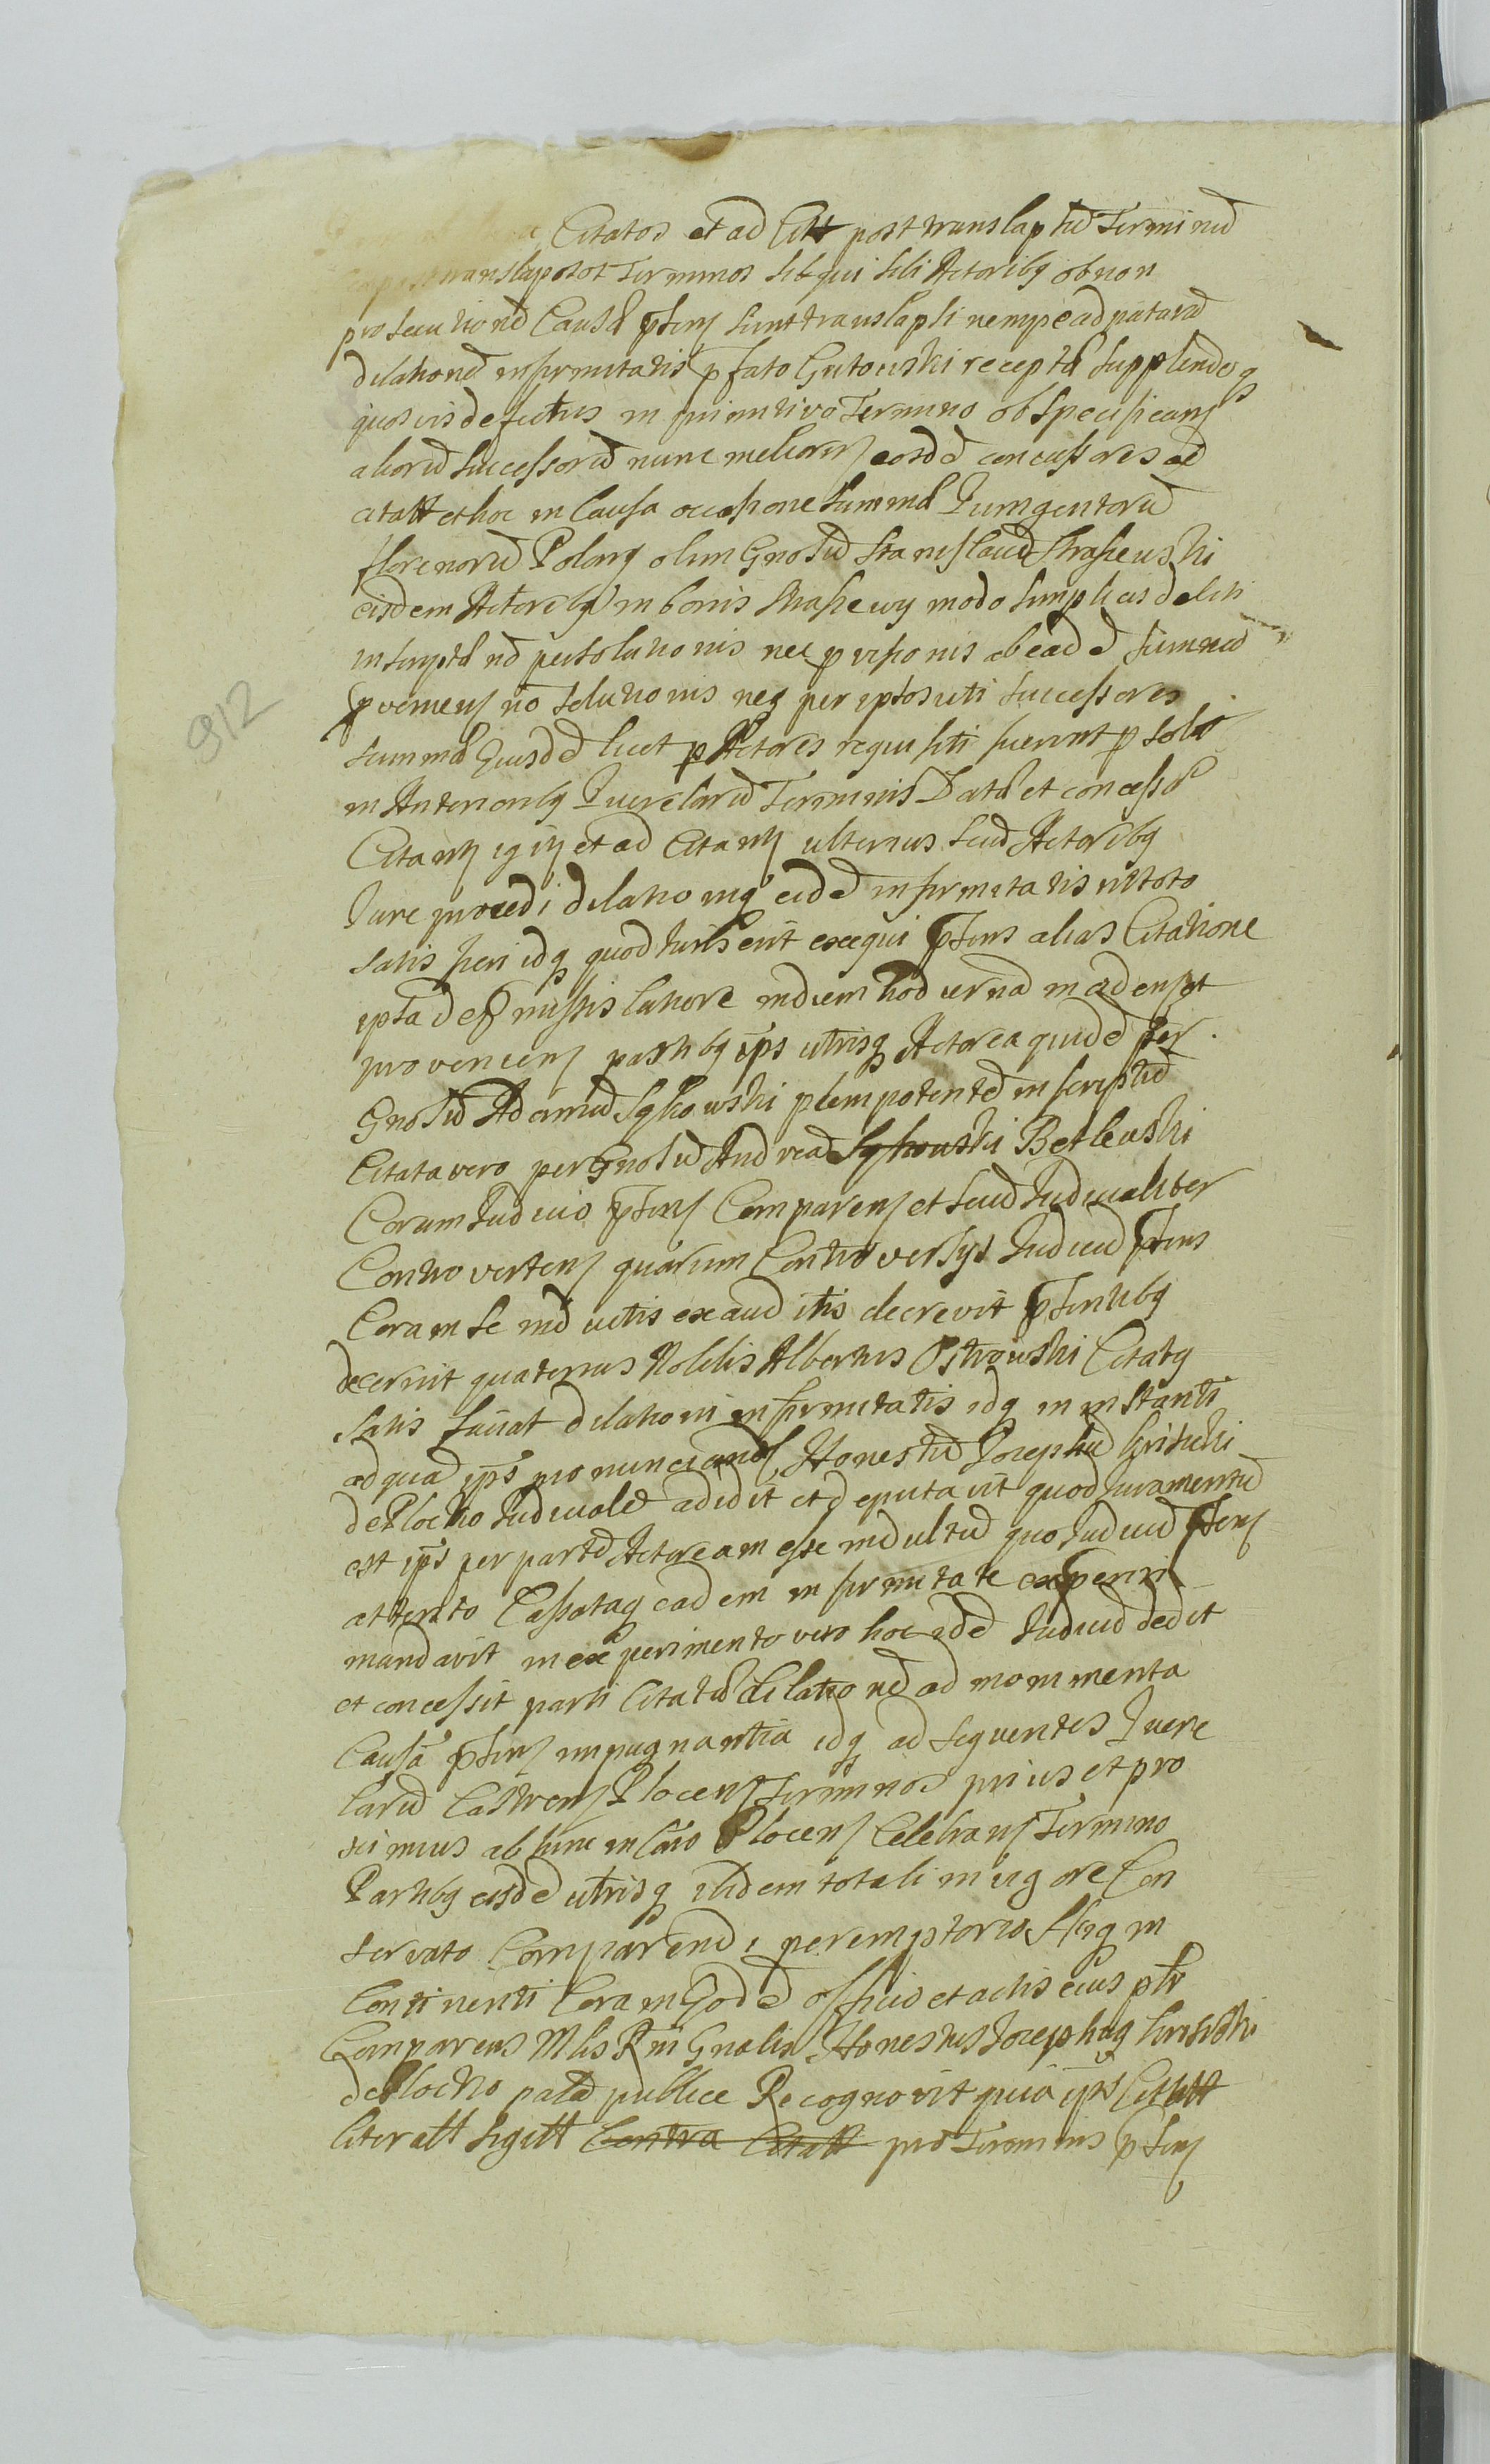 Citatos et ad Citt post translaptū Terminū
translapsos Terminos sibi qui sili Actoribq ob non
prosecutionē Causæ pnsens sunt translapsi nempe ad paratā
dilationē infirmitatis p fato Gutowski receptæ supplendoq
quosvis defectus in primitivo Termino ob specificans
aliorū successorū nunc meliorens eosdē concessores ad
citatt et hoc in Causa occasione summæ Quingentorū
florenorū Polong olim Gnosū Stanislaū Straszewski
eisdem Actoribq in bonis Straszewy modo simplicis debiti
inscriptæ nō persolutionis nec provisionis ab eadē summa
proveniens nō solutionis neq per ipsos uti successores
summæ Eiusdē licet p Actores requisiti fuerunt p solō
in Anterioribq Querelarū Terminis Datæ et concessæ
Citatiōs igitz et ad Citatiōs ulterius seuū Actoribq
Jure procedi dilationiq eidē infirmitatis in toto
satis fieri idq quod Juris erit exequi pnsens alias Citatione
ipsā desup missis latiore in diem hodiernā in gdensēt
proveniens partibq ips utrisq Actorea quidē per
Gnosū Adamū Sykowski plenipotentē inscriptū
Citata vero per Gnosū Andreā Sykowski Betlewski
Coram Judicio pnsens Comparens et secū Judicialiter
Controvertens quarum Controversys Judiciū pnsens
Coram se inductis exauditis decrevit pnsentibq
decernit quatenus Nobilis Albertus Ostrowski Citatq
satis faciat dilationi infirmitatis idq in instanti
ad quā ips pronunciandō Honestū Josephū
de Plocko Judicialē addidit et deputavit quod Juramentū
est ips per partē Actoream esse indultū quo Judiciū pnsens
attento Cassataq eadem infirmitate experiri
mandavit in experimento vero hoc idē Judiciū dedit
et concessit parti Citatæ dilationē ad monimenta
Causā pnsens impugnantia idq ad sequentes Quere
larū Castrens Plocens Terminos prius et pro
ximius ab hinc in Cāro Plocens Celebrans Termino
Partibq eisdē utrisq ibidem totali in vigore Con
servato Comparendi peremptorio hicq in
Continenti Coram Eodē officio et actis eius ptr
Comparens Mlis Rni Gnalis Honestus Josephuq
de Plocko palā publice Recognovit quia ips Citatt
literatt sigitt Contra Citatt pro Terminis pnsens
912